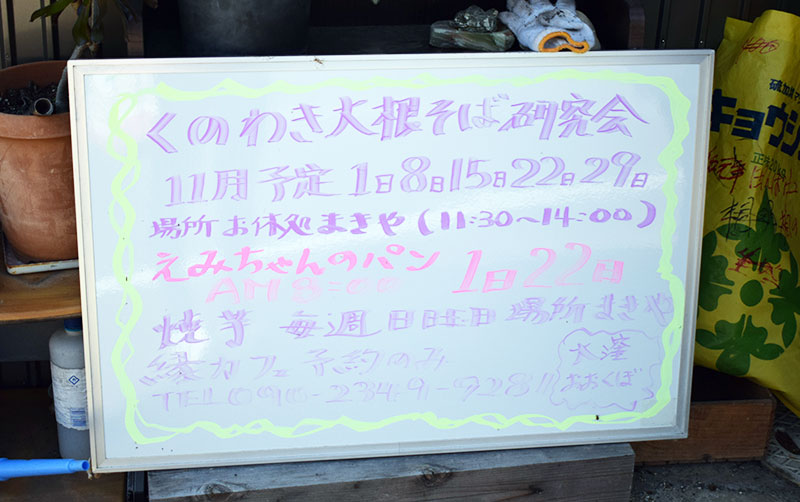 くのわき大根そば研究会
11月予定 1日8日15日22日29日
場所 お休処 まきや (11:30〜14:00)
えみちゃんのパン 1日 22日
AM 8:00
焼芋 毎週 日日 場所 まきや
縁カフェ 予約のみ
大窪
おおくぼ
キョウ